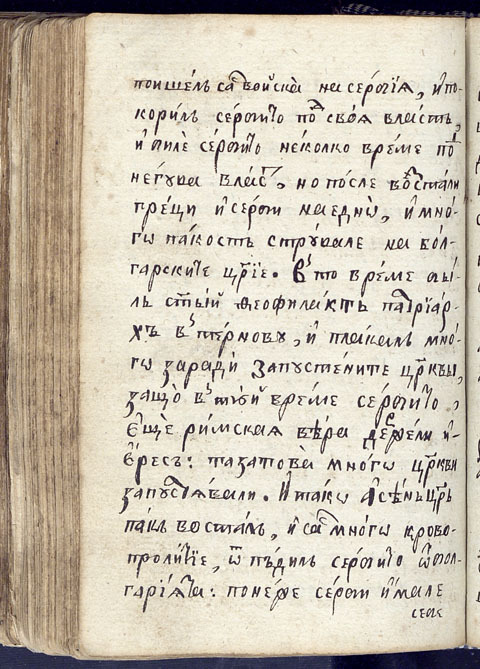 поишелъ са воиска на сербїѧ, и по-
корилъ сербїю под своѧ власть,
и биле сербїю неколко време под
негува власт, но после востали
грѣци и серби наеднѡ, и мно-
гѡ пакость струвале на бол-
гарските црїе. в то време бы-
ль стый Ѳеофилактъ патрїар-
хъ в терновѹ, и плакалъ мно-
гѡ заради запустените црквы,
защо в той време сербїю,
еще римская вѣра держели и-
ересъ: та затова многѡ цркви
запустѧвали. И такѡ асѣнь црь
пакъ восталъ, и са многѡ крово-
пролитїе, ѿпѣдилъ сербїю ѿ бол-
гарїѧта: понеже серби имале
себе